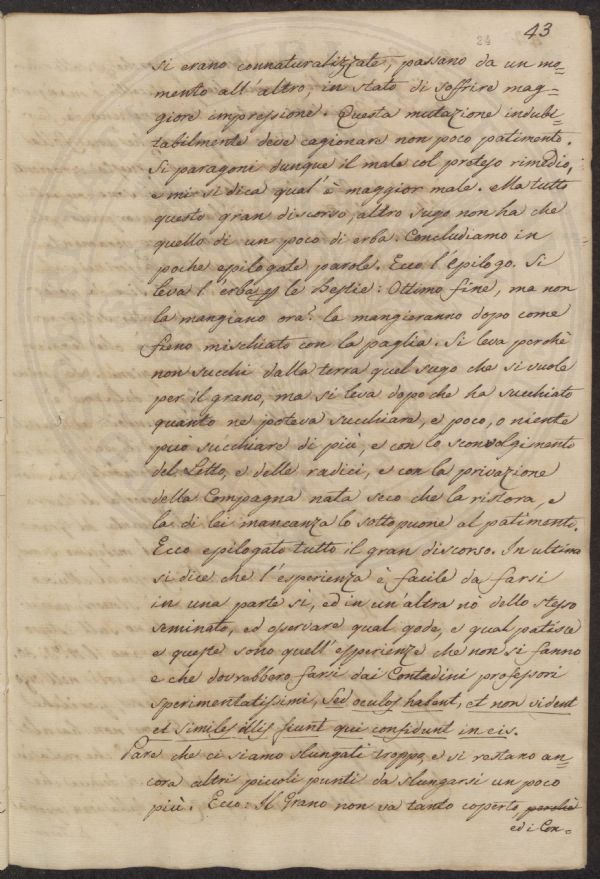 43
24
si erano connaturalizzate, passano da un mo=
mento all'altro, in stato di soffrire mag=
giore impressione. Questa mutazione indubi=
tabilmente deve cagionare non poco patimento.
Si paragoni dunque il male col preteso rimedio,
e mi si dica qual'è maggior male. Ma tutto
questo gran discorso, altro sugo non ha che
quello di un poco di erba. Concludiamo in
poche epilogate parole. Ecco l'Epilogo. Si
leva l'erba le Bestie: Ottimo fine, ma non
la mangiano ora? la mangieranno dopo come
fieno mischiato con la paglia. Si leva perchè
non succhi dalla terra quel sugo che si vuole
per il grano, ma si leva dopo che ha succhiato
quanto ne poteva succhiare, e poco, o niente
può succhiare di più, e con lo sconvolgimento
del Letto, e delle radici, e con la privazione
della Compagna nata seco che la ristora, e
la di lei mancanza lo sottopuone al patimento.
Ecco epilogato tutto il gran discorso. In ultimo
si dice che l'esperienza è facile da farsi
in una parte sì, ed in un'altra nò dello stesso
seminato, ed osservare qual gode, e qual patisce
e queste sono quell'esperienze che non si fanno
e che dovrebbero farsi dai Contadini professori
sperimentatissimi, sed oculos habent, et non vident
et similes illis fiunt qui confidunt in eis.
Pare che ci siamo slungati troppo, e si restano an=
cora altri piccoli punti da slungarsi un poco
più. Ecco: Il Grano non va tanto coperto, perchè
ed i Con=